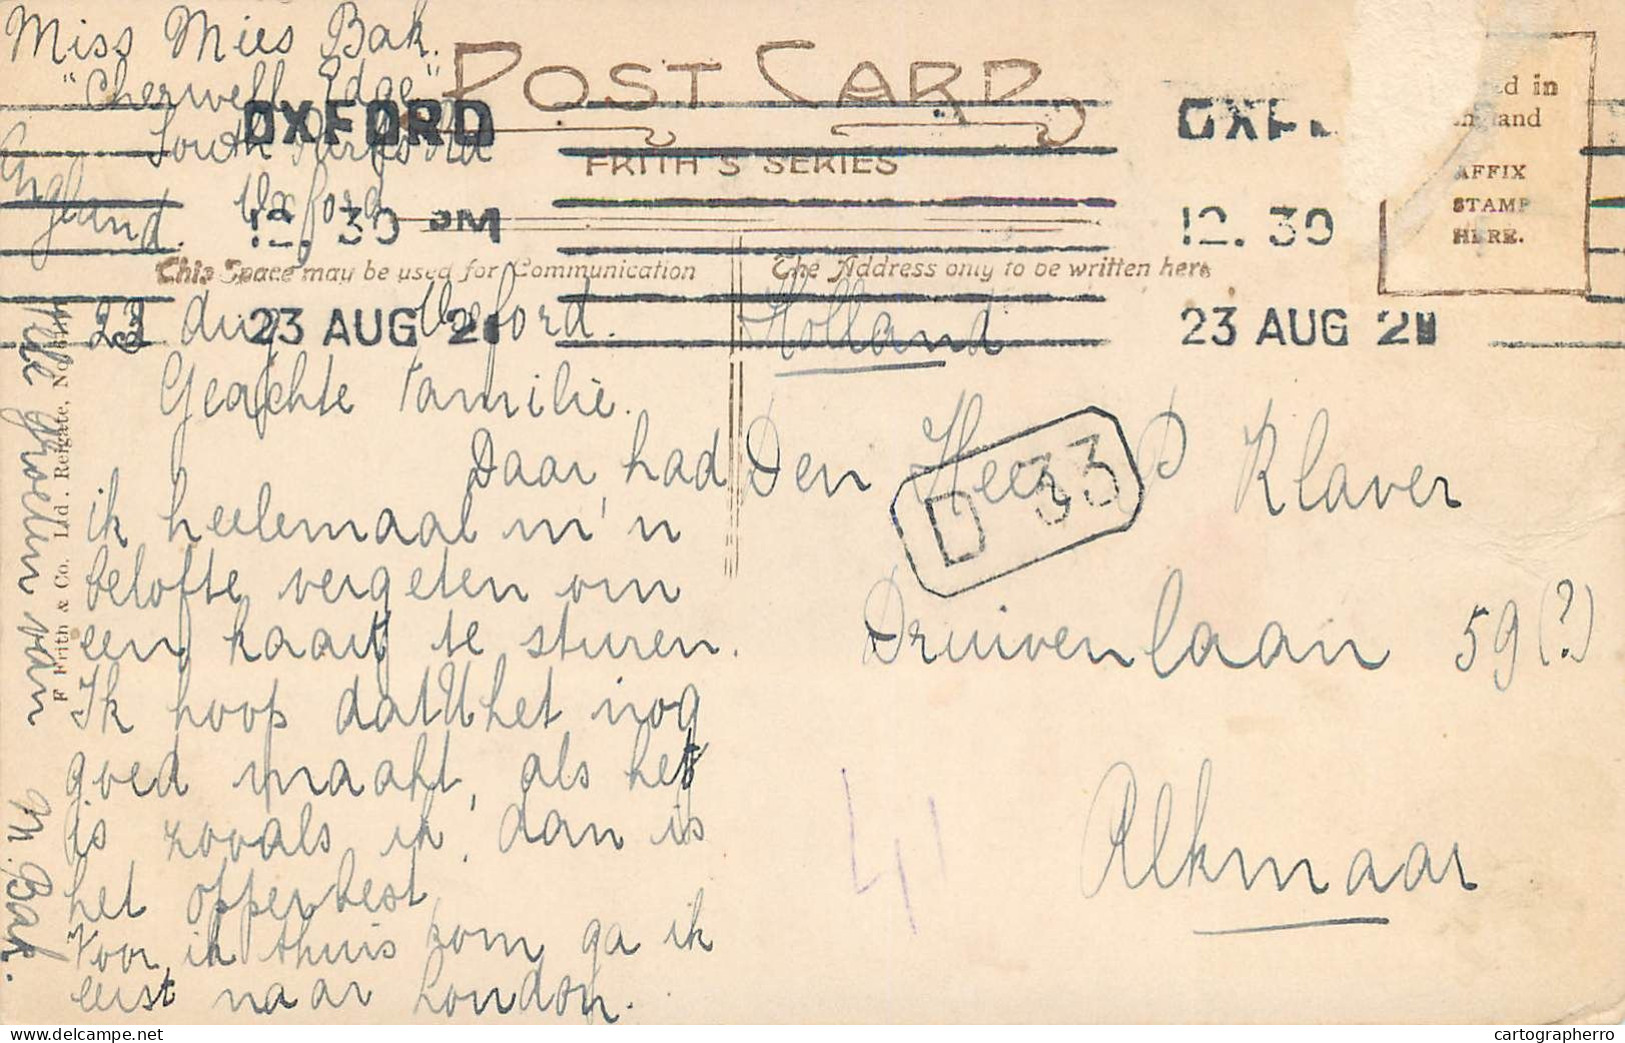 Miss Mies Bak.
"Cherwell Edge"
South Parks Rd
Oxford
England.
POST CARD
FRITH'S SERIES
This Space may be used for Communication
The Address only to be written here
OXFORD
12. 30 PM
23 AUG 21
12. 30
23 AUG 21
d in
land
AFFIX
STAMP
HERE.
23 Aug Oxford.
Geachte Familie.
Daar had
ik heelemaal m'n
belofte vergeten om
een kaart te sturen.
Ik hoop dat U het nog
goed maakt, als het
is zooals ik, dan is
het opperbest.
Voor ik thuis kom ga ik
eerst naar London.
Vele groeten van M. Bak.
F Frith & Co. Ltd. Reigate, No
Holland
Den Heer P Klaver
D 33
Druivenlaan 59 (?)
Alkmaar
41
delcampe.net
cartographerro